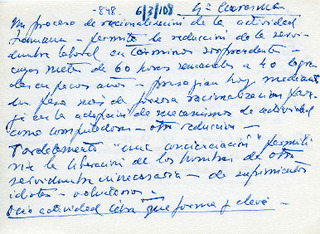 -848- 6/3/108 4ª Cuaresma
Un proceso de racionalización de la actividad
humana - permite la reducción de la servi-
dumbre laboral en términos sorprendentes -
cuyas metas de 60 horas semanales a 40 logra-
das en pocos años - prosiguen hoy mediante
un paso más de racionalización
en la adopción de mecanismos de actividad
como computadoras - otra reducción -
Tardelamente "una concienciación" permiti-
ría la liberación de los hombres de otra
servidumbre innecesaria - de sufrimientos
idiotas - voluntarios -
Ocio actividad libre que forma y eleva -